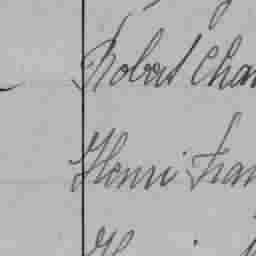 Robert Cha
Henri Fran